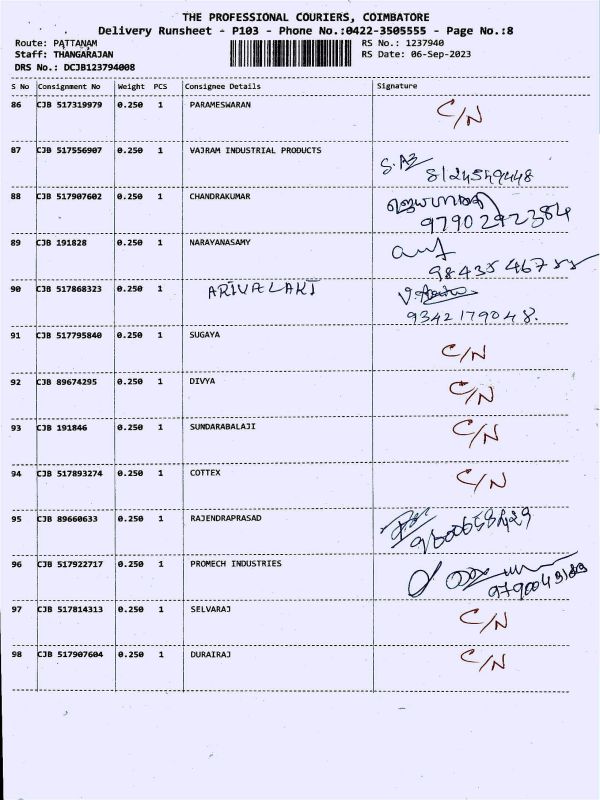 THE PROFESSIONAL COURIERS, COIMBATORE
Delivery Runsheet - P103 - Phone No.:0422-3505555 - Page No.:8
Route: PATTANAM RS No.: 1237940
Staff: THANGARAJAN RS Date: 06-Sep-2023
DRS No.: DCJB123794008
S No Consignment No Weight PCS Consignee Details Signature
86 CJB 517319979 0.250 1 PARAMESWARAN C/N
87 CJB 517556907 0.250 1 VAJRAM INDUSTRIAL PRODUCTS
8124549448
88 CJB 517907602 0.250 1 CHANDRAKUMAR
9790292384
89 CJB 191828 0.250 1 NARAYANASAMY
90 CJB 517868323 0.250 1 ARIVALAKI
9342179048.
91 CJB 517795840 0.250 1 SUGAYA C/N
92 CJB 89674295 0.250 1 DIVYA C/N
93 CJB 191846 0.250 1 SUNDARABALAJI C/N
94 CJB 517893274 0.250 1 COTTEX C/N
95 CJB 89660633 0.250 1 RAJENDRAPRASAD
96 CJB 517922717 0.250 1 PROMECH INDUSTRIES
97 CJB 517814313 0.250 1 SELVARAJ C/N
98 CJB 517907604 0.250 1 DURAIRAJ C/N